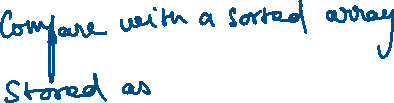 Compare with a sorted array
Stored as